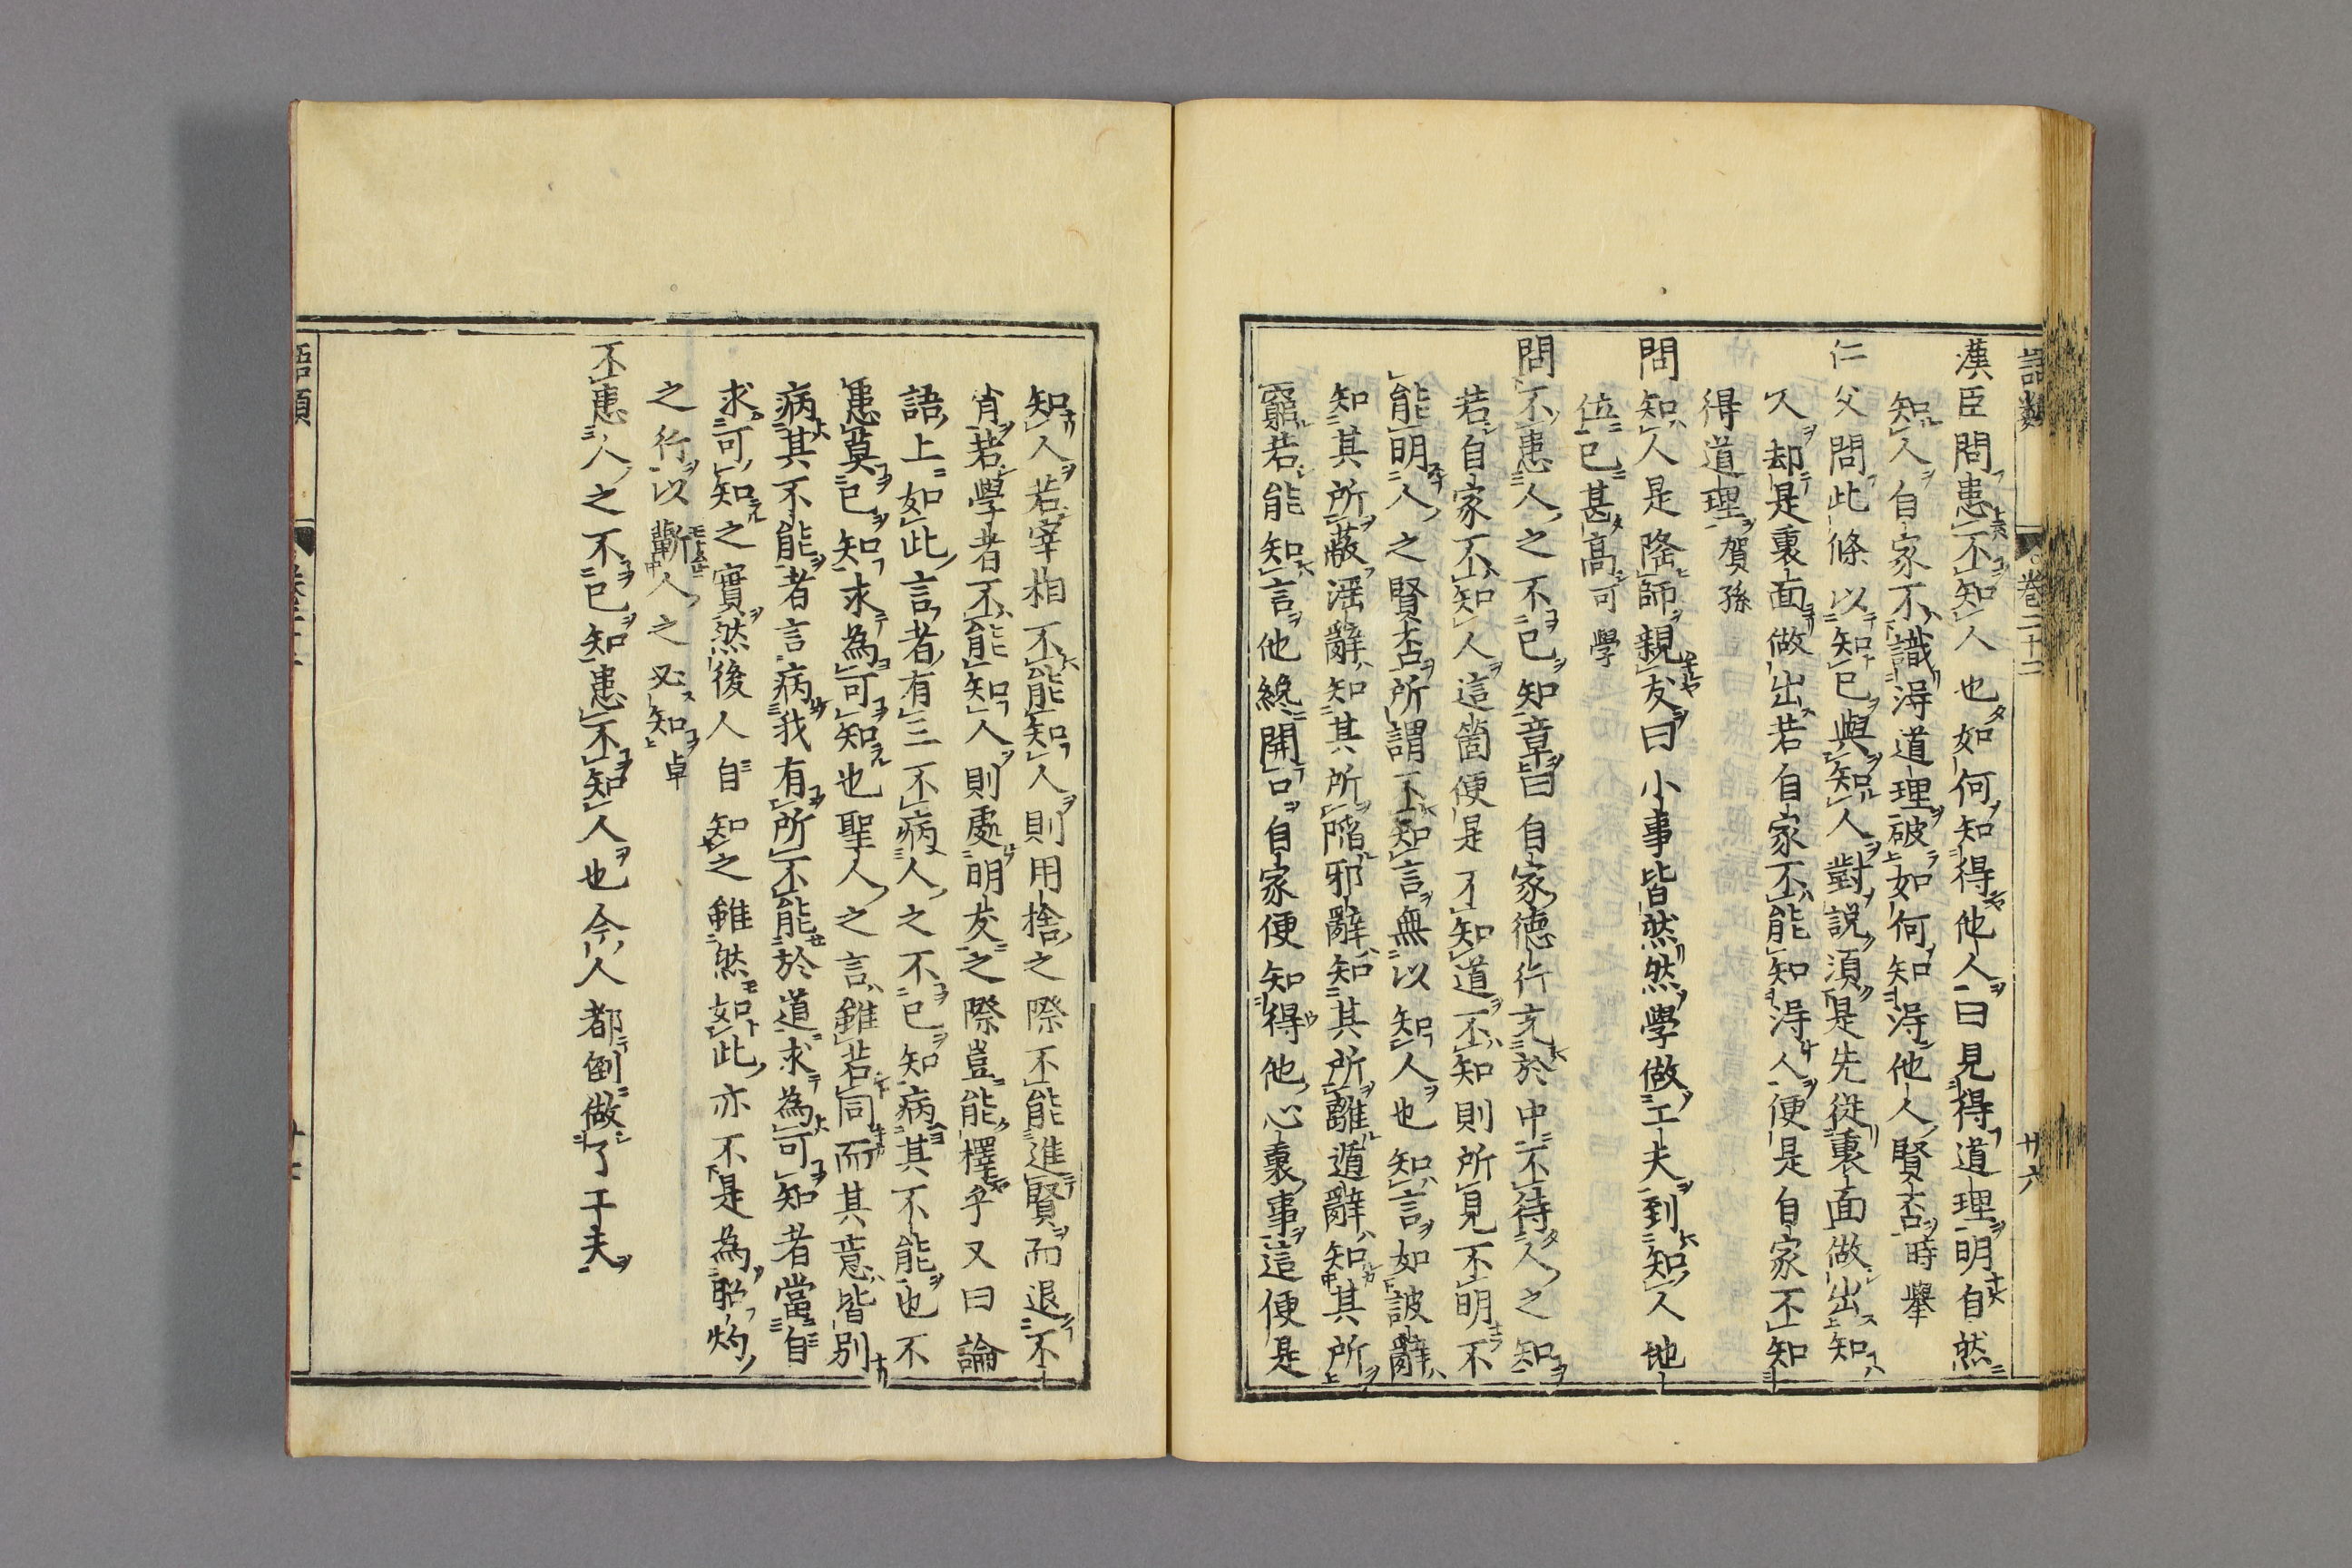 語類 卷二十二 廿六
漢臣問患不知人也如何知得他人曰見得道理明自然
知人自家不識得道理破如何知得他人賢否時舉
仁父問此條以知己與知人對說須是先從裏面做出知
人却是裏面做出若自家不能知得人便是自家不知
得道理賀孫
問知人是隆師親友曰小事皆然然學做工夫到知人地
位已甚高可學
問不患人之不己知章曰自家德行充於中不待人之知
若自家不知人這箇便是不知道不知則所見不明不
能明人之賢否所謂不知言無以知人也知言如詖辭
知其所蔽淫辭知其所陷邪辭知其所離遁辭知其所
窮若能知言他纔開口自家便知得他心裏事這便是
知人若宰相不能知人則用捨之際不能進賢而退不
肖若學者不能知人則處朋友之際豈能擇乎又曰論
語上如此言者有三不病人之不己知病其不能也不
患莫己知求為可知也聖人之言雖若同而其意皆別
病其不能者言病我有所不能於道求為可知者當自
求可知之實然後人自知之雖然如此亦不是為昭灼
之行以蘄人之必知卓
不患人之不己知患不知人也今人都倒做了工夫
語類